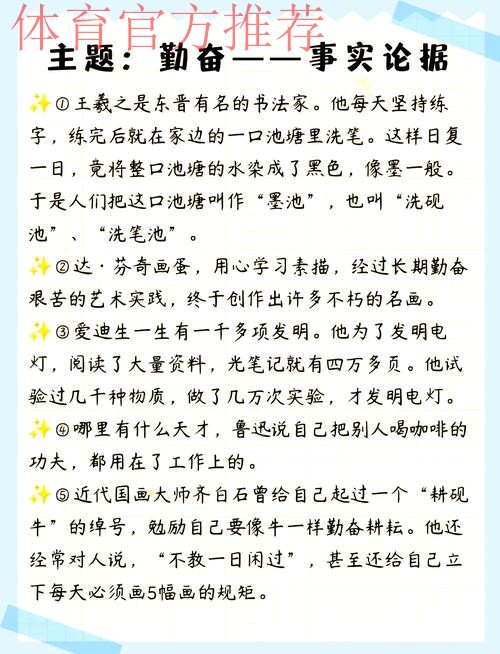 体育官方推荐
主题：勤奋——事实论据
✨①王羲之是东晋有名的书法家。他每天坚持练
字，练完后就在家边的一口池塘里洗笔。这样日复
一日，竟将整口池塘的水染成了黑色，像墨一般。
于是人们把这口池塘叫作“墨池”，也叫“洗砚
池”、“洗笔池”。
✨②达·芬奇画蛋，用心学习素描，经过长期勤奋
艰苦的艺术实践，终于创作出许多不朽的名画。
✨③爱迪生一生有一千多项发明。他为了发明电
灯，阅读了大量资料，光笔记就有四万多页。他试
验过几千种物质，做了几万次实验，才发明电灯。
✨④哪里有什么天才，鲁迅说自己把别人喝咖啡的
功夫，都用在了工作上的。
✨⑤近代国画大师齐白石曾给自己起过一个“耕砚
牛”的绰号，勉励自己要像牛一样勤奋耕耘。他还
经常对人说，“不教一日闲过”，甚至还给自己立
下每天必须画5幅画的规矩。